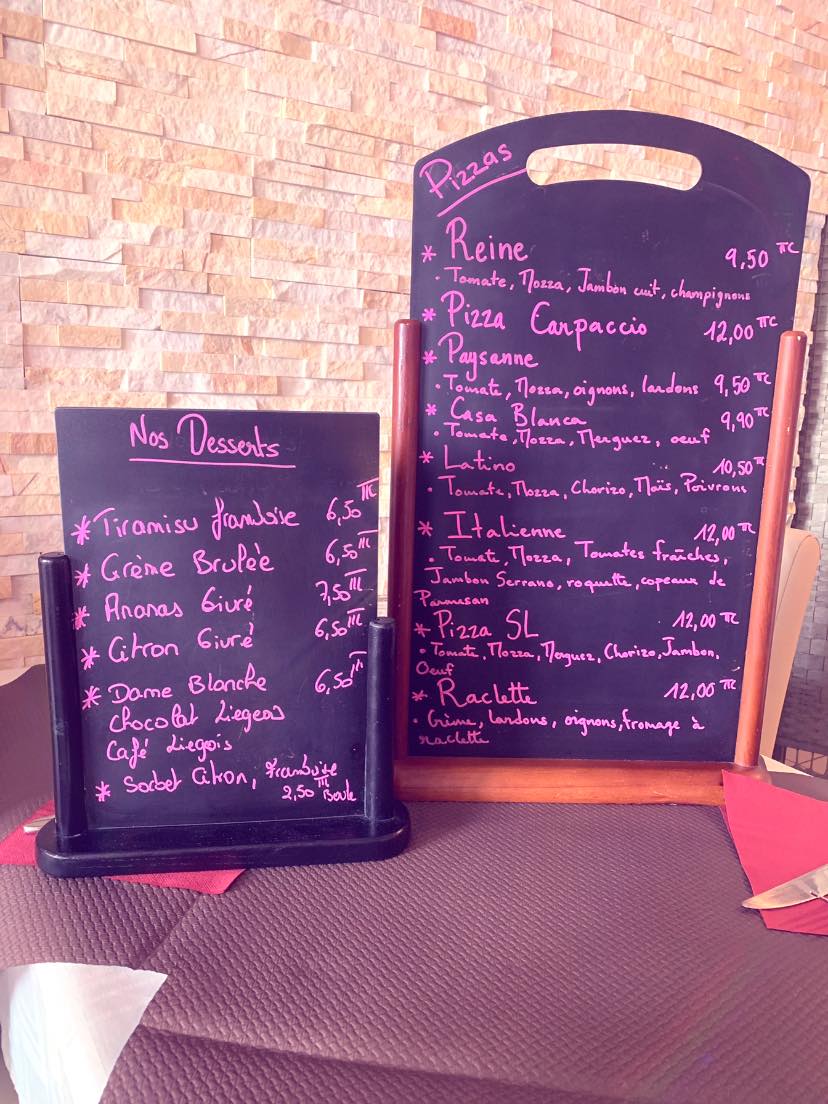 Nos Desserts
* Tiramisu framboise 6,50 TTC
* Crème Brulée 6,50 TTC
* Ananas Givré 7,50 TTC
* Citron Givré 6,50 TTC
* Dame Blanche 6,50 TTC
Chocolat Liegeois
Café Liegeois
* Sorbet Citron, Framboise
2,50 TTC Boule
Pizzas
* Reine 9,50 TTC
• Tomate, Mozza, Jambon cuit, champignons
* Pizza Carpaccio 12,00 TTC
* Paysanne
• Tomate, Mozza, oignons, lardons 9,50 TTC
* Casa Blanca 9,90 TTC
• Tomate, Mozza, Merguez, oeuf
* Latino 10,50 TTC
• Tomate, Mozza, Chorizo, Maïs, Poivrons
* Italienne 12,00 TTC
• Tomate, Mozza, Tomates fraîches,
Jambon Serrano, roquette, copeaux de
Parmesan
* Pizza SL 12,00 TTC
• Tomate, Mozza, Merguez, Chorizo, Jambon,
Oeuf
* Raclette 12,00 TTC
• Crème, lardons, oignons, fromage à
raclette